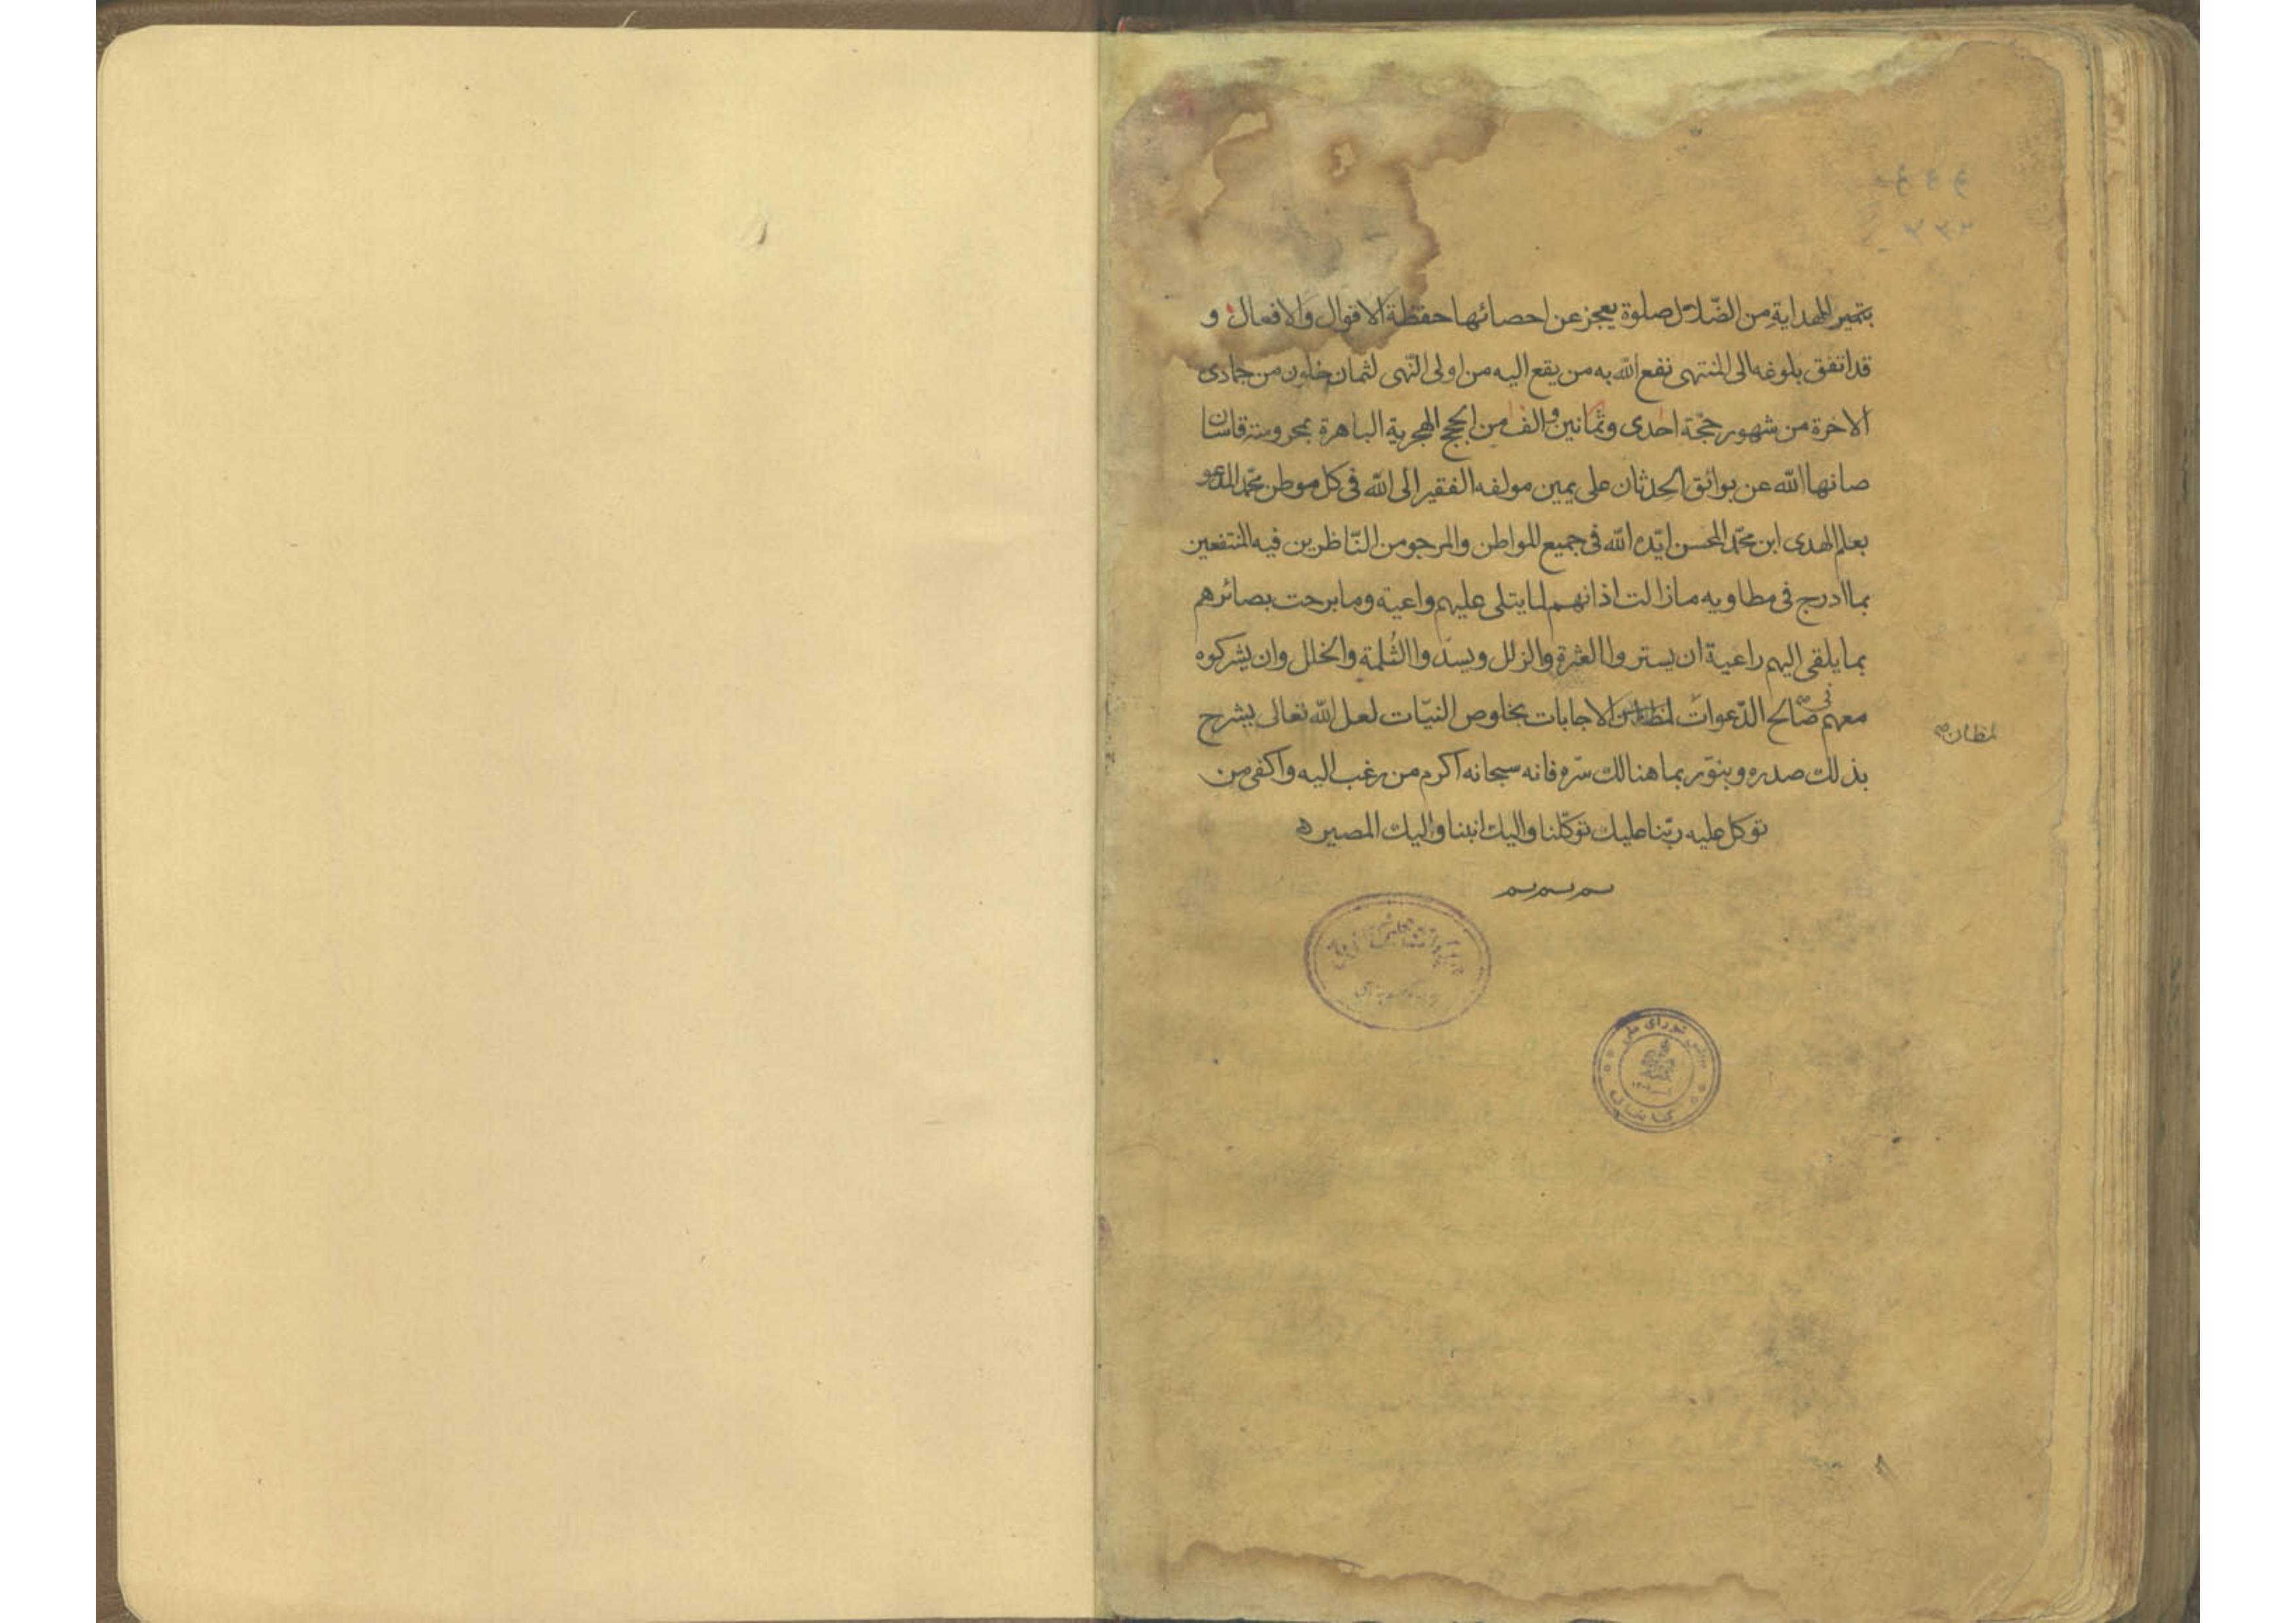 بتميز الهداية من الضّلال صلوة يعجز عن احصائها حفظة الاقوال والافعال و
قد اتفق بلوغه الى المنتهى نفع الله به من يقع اليه من اولى النّهى لثمان خلون من جمادى
الاخرة من شهور حجّة احدى وثمانين والف من الحجج الهجرية الباهرة بمحروسة قاسان
صانها الله عن بوائق الحدثان على يمين مولفه الفقير الى الله فى كل موطن محمّد المدعو
بعلم الهدى ابن محمّد المحسن ايّده الله فى جميع المواطن والمرجو من النّاظرين فيه المنتفعين
بما ادرج فى مطاويه ما زالت اذانهم لما يتلى عليهم واعية وما برحت بصائرهم
بما يلقى اليهم راعية ان يستروا العثرة والزلل ويسدّوا الثلمة والخلل وان يشركوه
معهم فى صالح الدّعوات الاجابات بخلوص النيّات لعل الله تعالى يشرح
لمظان صح
بذلك صدره وينوّر بما هنالك سرّه فانه سبحانه اكرم من رغب اليه واكفى من
توكل عليه ربّنا عليك توكّلنا واليك انبنا واليك المصير
شورای ملی